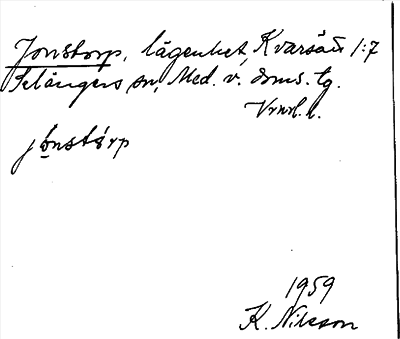 Jonstorp, lägenhet, Kvarsätt 1:7
Selångers sn, Med. v. doms. tg.
Vrnl. l.
jònstárp
1959
K. Nilsson